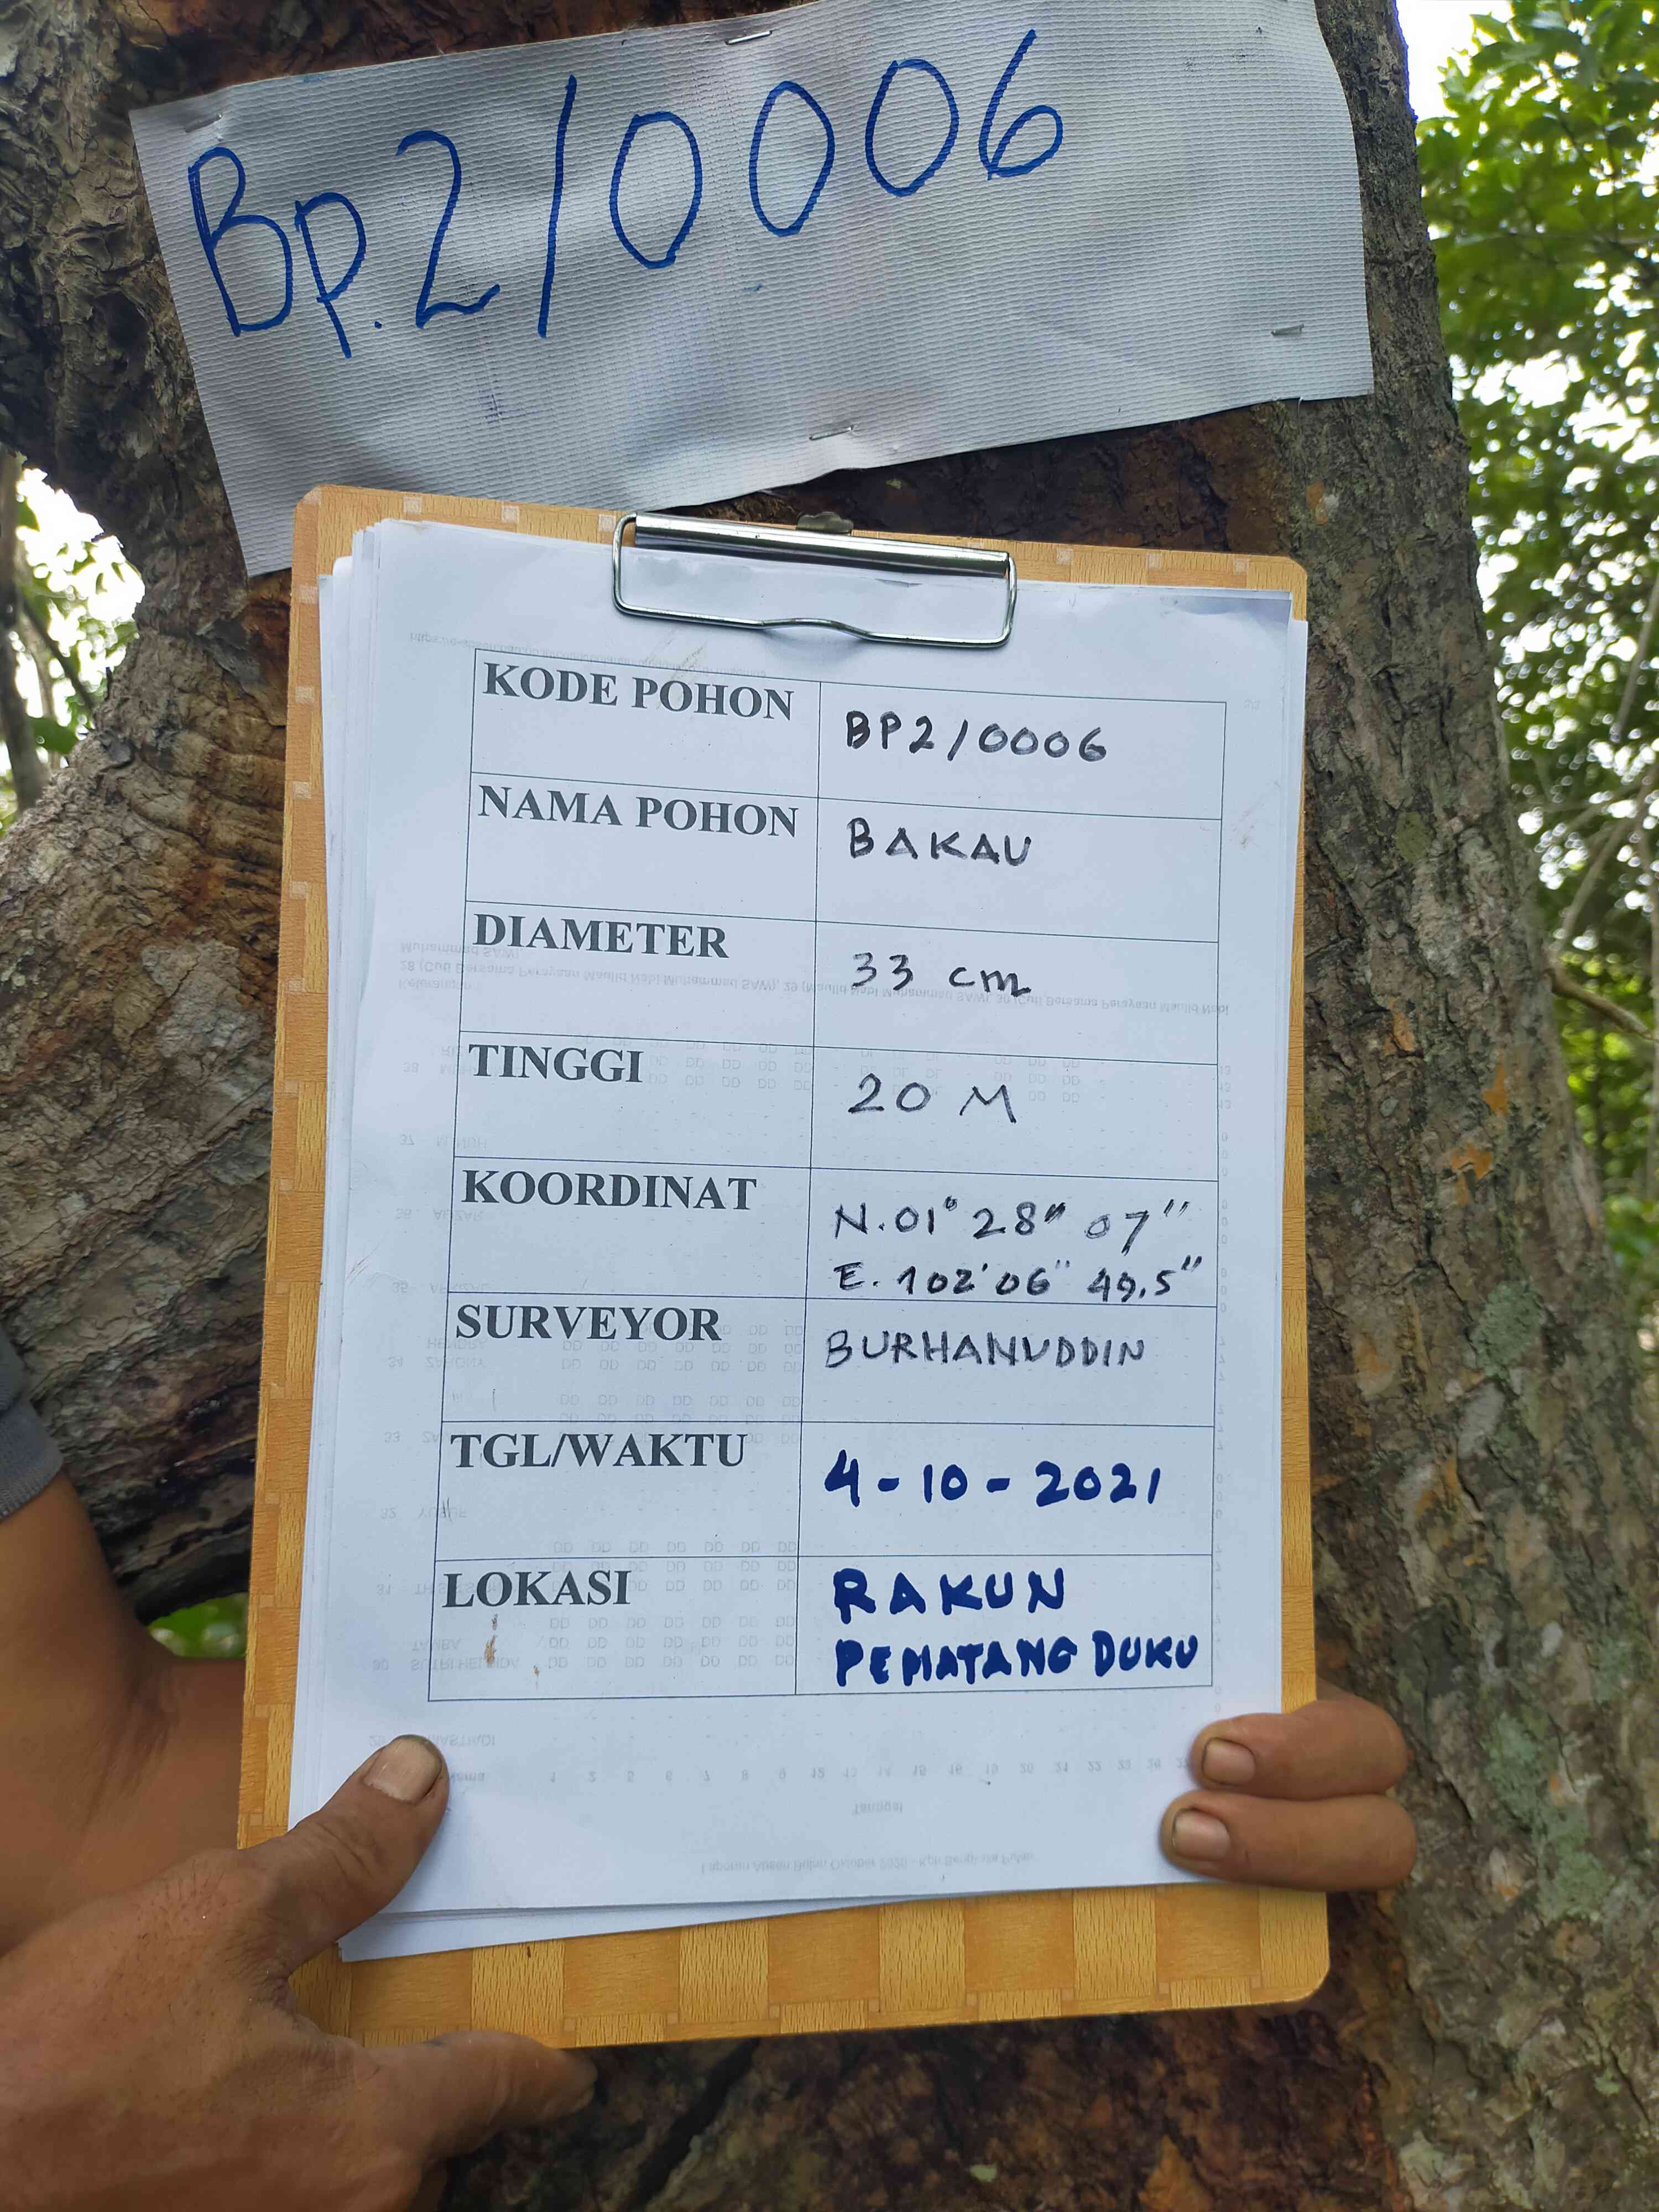 Bp.2/0006
KODE POHON BP2/0006
NAMA POHON BAKAU
DIAMETER 33 cm
TINGGI 20 M
KOORDINAT N.01° 28" 07"
E. 102' 06" 49.5"
SURVEYOR BURHANUDDIN
TGL/WAKTU 4-10-2021
LOKASI RAKUN
PEMATANG DUKU